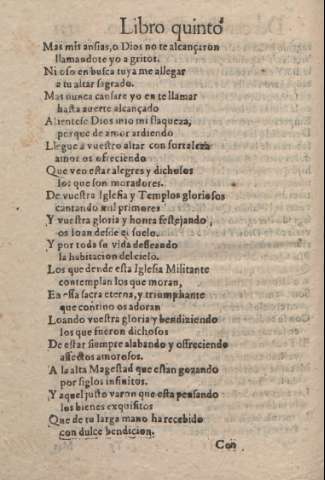 Libro quinto
Mas mis ansias, o Dios no te alcançaron
llamandote yo a gritos.
Ni oso en busca tuya me allegar
a tu altar sagrado.
Mas nunca cansare yo en te llamar
hasta auerte alcançado
Alientese Dios mio mi flaqueza,
porque de amor ardiendo
Llegue a vuestro altar con fortaleza
amor os ofreciendo
Que veo estar alegres y dichosos
los que son moradores.
De vuestra Iglesia y Templos gloriosos
cantando mil primores
Y vuestra gloria y honra festejando,
os loan desde el suelo.
Y por toda su vida desseando
la habitacion del cielo.
Los que dende esta Iglesia Militante
contemplan los que moran,
En essa sacra eterna, y triumphante
que contino os adoran
Loando vuestra gloria y bendiziendo
los que fueron dichosos
De estar siempre alabando y ofreciendo
affectos amorosos.
A la alta Magestad que estan gozando
por siglos infinitos.
Y aquel justo varon que esta pensando
los bienes exquisitos
Que de tu larga mano ha recebido
con dulce bendicion.
Con